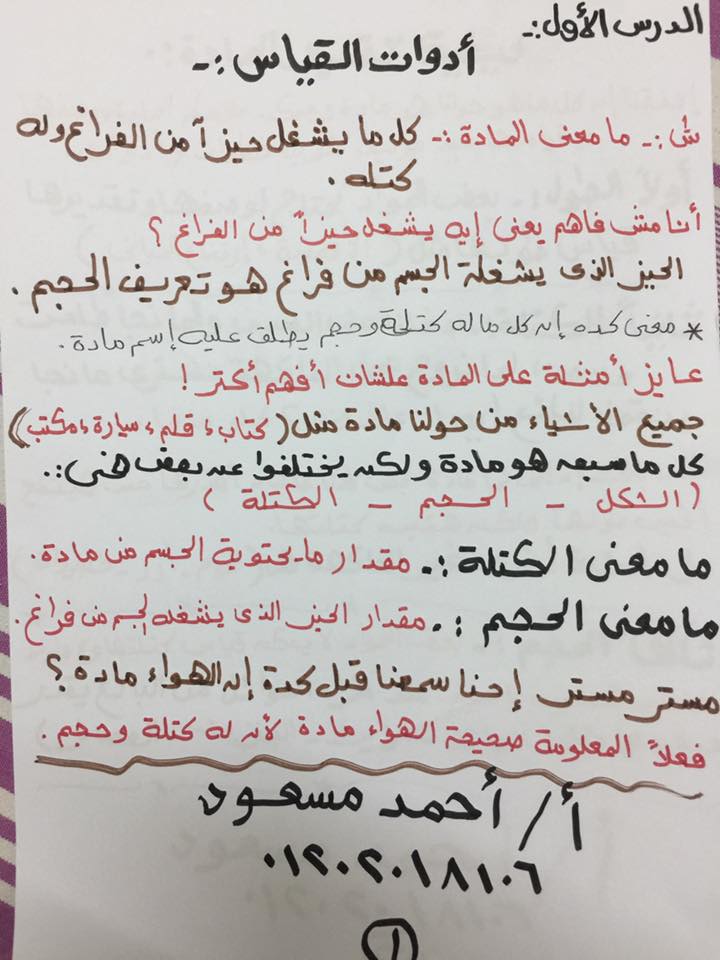 الدرس الأول :-
أدوات القياس :-
س :- ما معنى المادة :- كل ما يشغل حيزاً من الفراغ وله
كتله .
أنا مش فاهم يعنى إيه يشغل حيزاً من الفراغ ؟
الحيز الذى يشغلة الجسم من فراغ هو تعريف الحجم .
* معنى كده إن كل ما له كتلة وحجم يطلق عليه إسم مادة .
عايز أمثلة على المادة علشان أفهم أكتر !
جميع الأشياء من حولنا مادة مثل ( كتاب ، قلم ، سيارة ، مكتب )
كل ما سبق هو مادة ولكن يختلفوا عن بعض فى :.
( الشكل - الحجم - الكتلة )
ما معنى الكتلة :- مقدار ما يحتوية الجسم من مادة .
ما معنى الحجم :- مقدار الحيز الذى يشغله الجسم من فراغ .
مستر مستر إحنا سمعنا قبل كدة إن الهواء مادة ؟
فعلاً المعلومة صحيحة الهواء مادة لأن له كتلة وحجم .
أ / أحمد مسعود
٠١٢٠٢٠١٨١٠٦
١